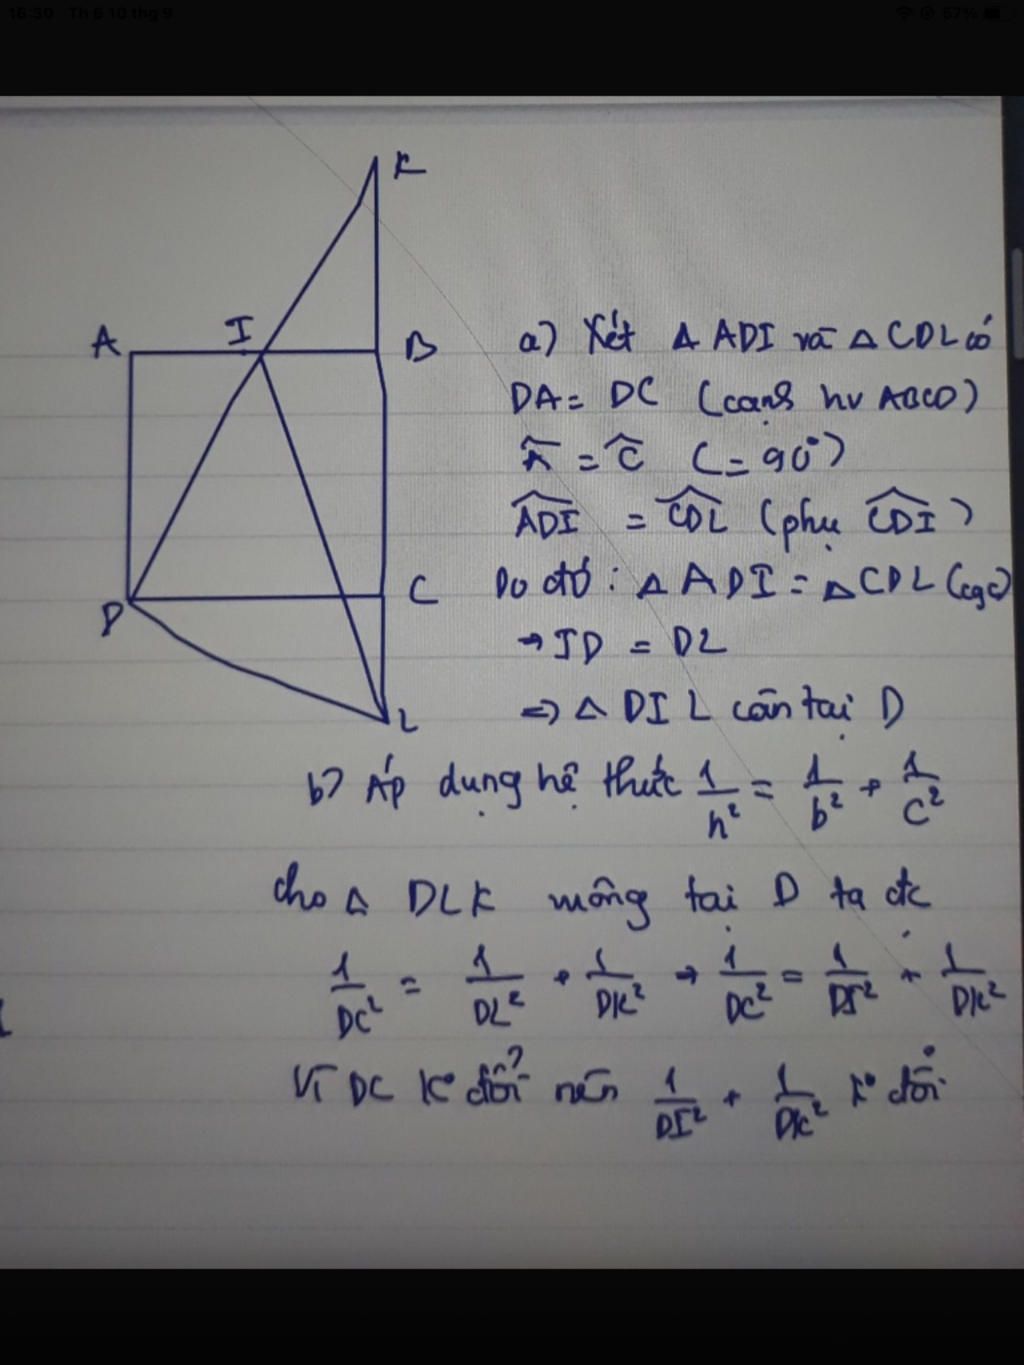 16:50 Th 6 10 thg 9
57%
K
A I B
a) Xét Δ ADI và Δ CDL có
DA = DC (cạnh hv ABCD)
Â = Ĉ (= 90°)
ADI^ = CDL^ (phụ CDI^)
D C Do đó : Δ ADI = Δ CDL (cgc)
→ ID = DL
L => Δ DIL cân tại D
b) Áp dụng hệ thức 1/h² = 1/b² + 1/c²
cho Δ DLK vuông tại D ta đc
1/DC² = 1/DL² + 1/DK² → 1/DC² = 1/DI² + 1/DK²
Vì DC k° đổi nên 1/DI² + 1/DK² k° đổi